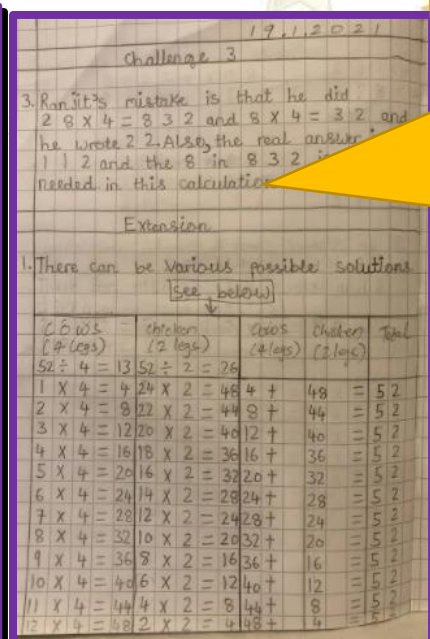 19.1.2021
Challenge 3
3. Ranjit's mistake is that he did
28 x 4 = 832 and 8 x 4 = 32 and
he wrote 22. Also, the real answer
112 and the 8 in 832
needed in this calculation
Extension
1. There can be various possible solutions
see below
Cows Chicken Cows Chicken Total
(4 legs) (2 legs) (4 legs) (2 legs)
52 ÷ 4 = 13 52 ÷ 2 = 26
1 x 4 = 4 24 x 2 = 48 4 + 48 = 52
2 x 4 = 8 22 x 2 = 44 8 + 44 = 52
3 x 4 = 12 20 x 2 = 40 12 + 40 = 52
4 x 4 = 16 18 x 2 = 36 16 + 36 = 52
5 x 4 = 20 16 x 2 = 32 20 + 32 = 52
6 x 4 = 24 14 x 2 = 28 24 + 28 = 52
7 x 4 = 28 12 x 2 = 24 28 + 24 = 52
8 x 4 = 32 10 x 2 = 20 32 + 20 = 52
9 x 4 = 36 8 x 2 = 16 36 + 16 = 52
10 x 4 = 40 6 x 2 = 12 40 + 12 = 52
11 x 4 = 44 4 x 2 = 8 44 + 8 = 52
12 x 4 = 48 2 x 2 = 4 48 + 4 = 52